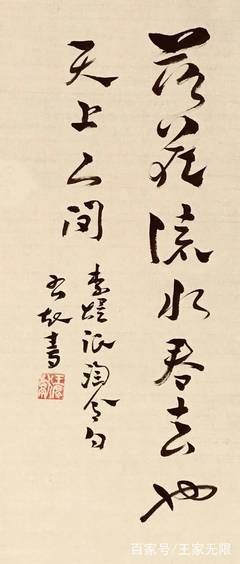 落花流水春去也
天上人间
李煜浪淘令句
書
百家号/王家无限